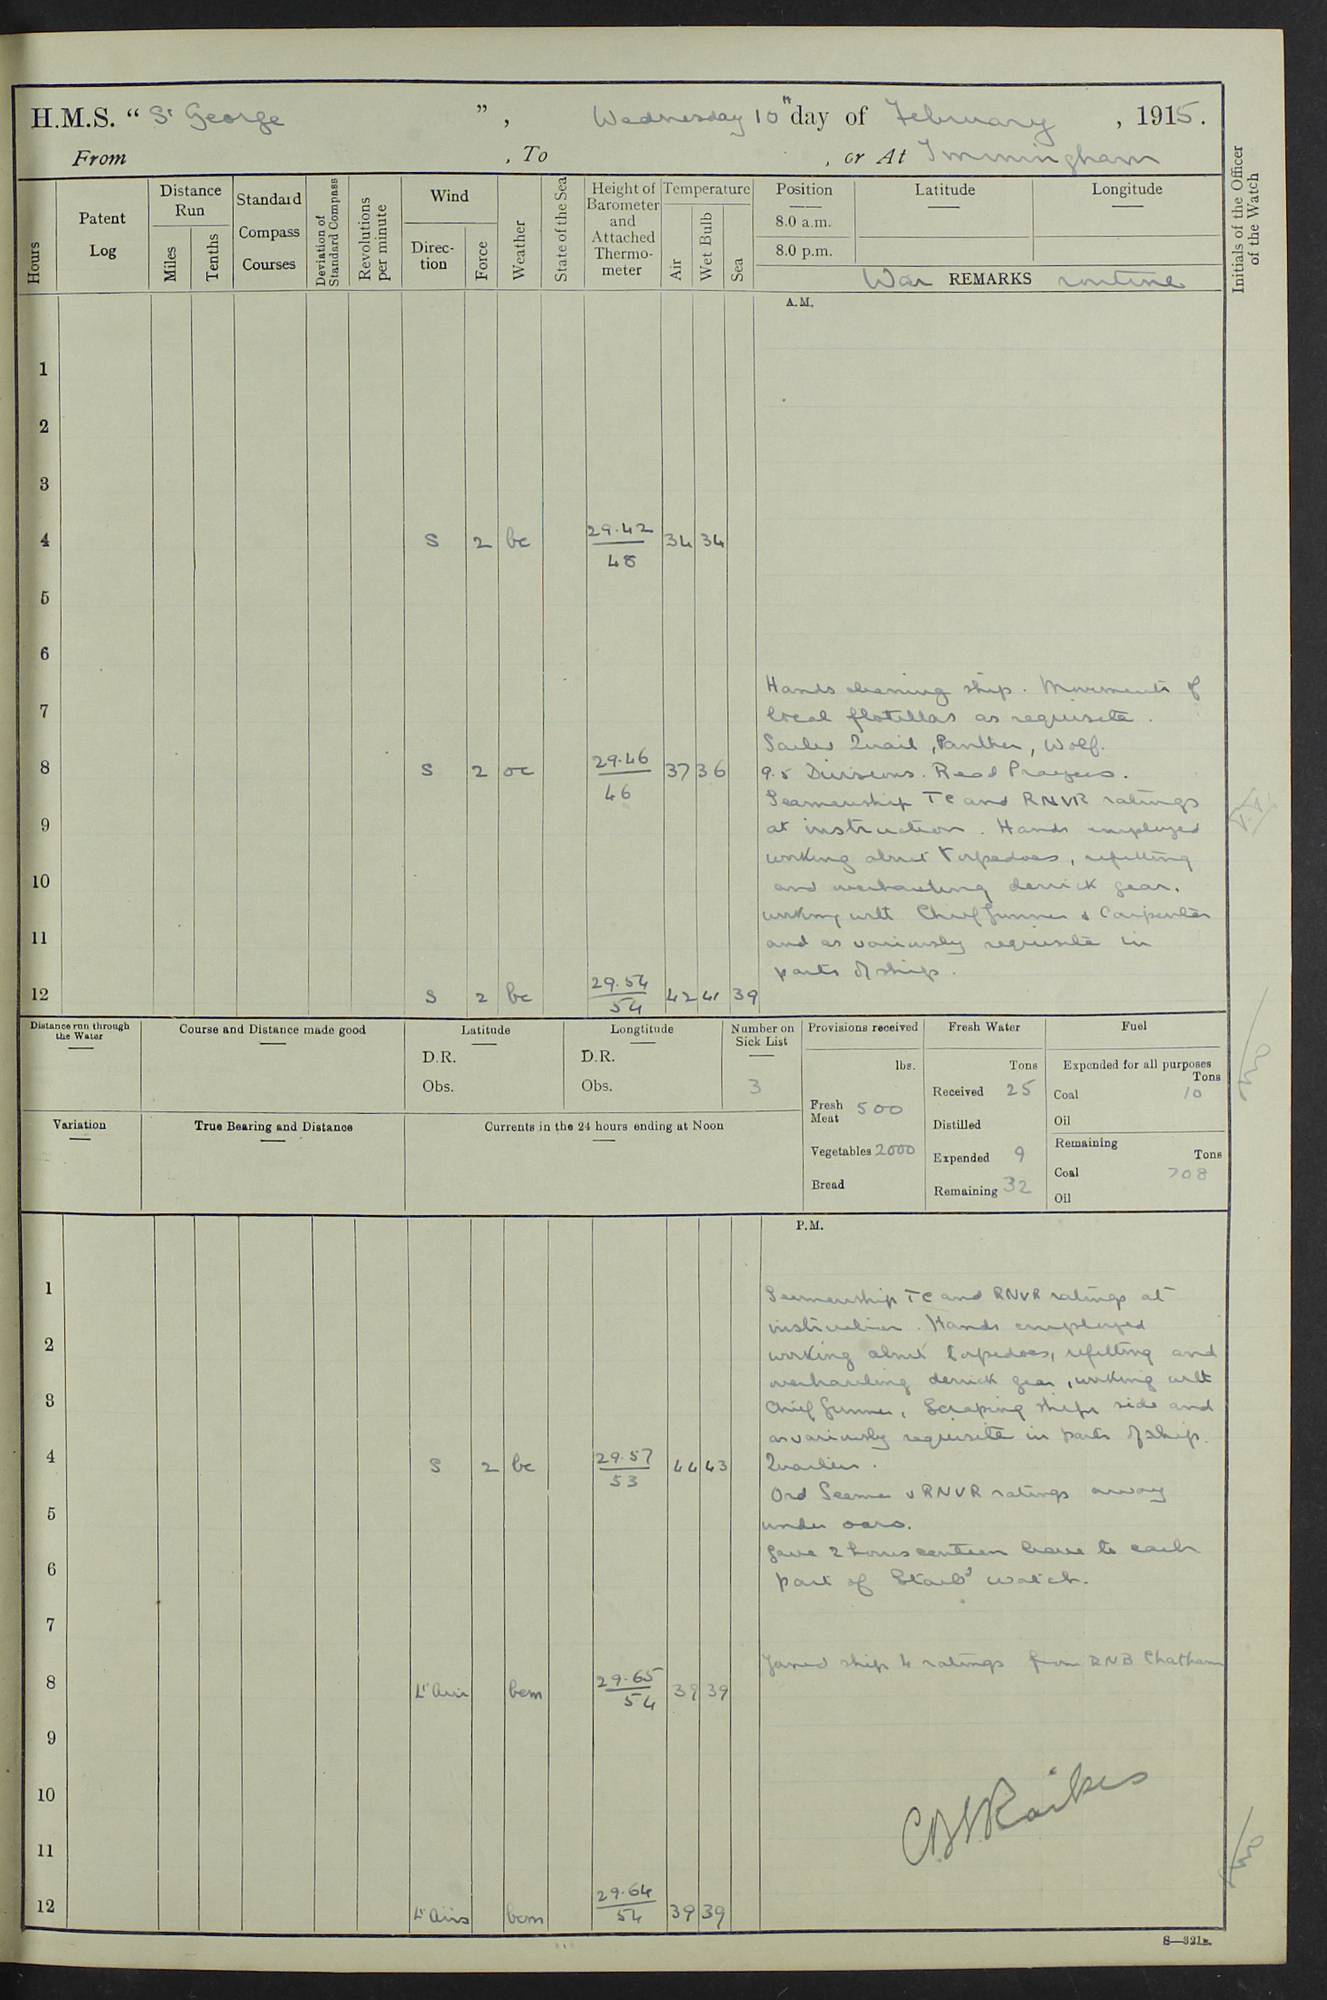 H.M.S. “ St George ” , Wednesday 10th day of February , 1915 .
From , To , or At Immingham
Hours
Patent Log
Distance Run
Miles
Tenths
Standard Compass Courses
Deviation of Standard Compass
Revolutions per minute
Wind
Direc-tion
Force
Weather
State of the Sea
Height of Barometer and Attached Thermo-meter
Temperature
Air
Wet Bulb
Sea
Position
8.0 a.m.
8.0 p.m.
Latitude
Longitude
War REMARKS routine
Initials of the Officer of the Watch
A.M.
1
2
3
4 S 2 bc 29.42 48 34 34
5
6
Hands cleaning ship. Movements of
7
local flotillas as requisite.
Sailed Quail, Panther, Wolf.
8 S 2 oc 29.46 46 37 36
9.5 Divisions. Read Prayers.
Seamanship TC and RNVR ratings
9
at instruction. Hands employed
working about torpedoes, refitting
10
and overhauling derrick gear.
working with Chief Gunner & Carpenter
11
and as variously requisite in
parts of ship.
12 S 2 bc 29.54 54 42 41 39
Distance run through the Water
Course and Distance made good
Latitude
D.R.
Obs.
Longtitude
D.R.
Obs.
Number on Sick List
3
Provisions received
lbs.
Fresh Meat 500
Vegetables 2000
Bread
Fresh Water
Tons
Received 25
Distilled
Expended 9
Remaining 32
Fuel
Expended for all purposes
Tons
Coal 10
Oil
Remaining
Tons
Coal 708
Oil
Variation
True Bearing and Distance
Currents in the 24 hours ending at Noon
P.M.
1
Seamanship TC and RNVR ratings at
instruction. Hands employed
2
working about torpedoes, refitting and
overhauling derrick gear, working with
3
Chief Gunner, Scraping ships side and
as variously requisite in parts of ship.
4 S 2 bc 29.57 53 44 43
Quarters.
Ord Seamen & RNVR ratings away
5
under oars.
Gave 2 hours canteen leave to each
6
part of Starbd watch.
7
Joined ship 4 ratings from RNB Chatham
8 Lt Airs bcm 29.65 54 39 39
9
10
CDSRaikes
11
12 Lt Airs bcm 29.64 54 39 39
S—321B.